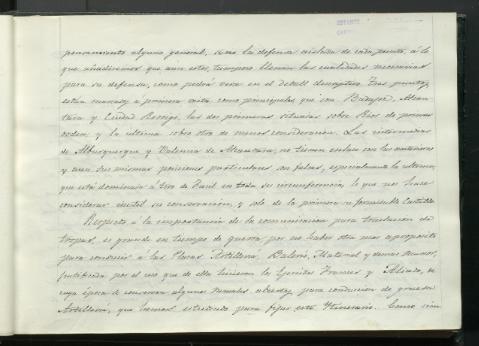 pensamiento alguno general, sino la defensa aislada de cada punto, á lo
que añadiremos que aun estos, tampoco llenan las cualidades necesarias
para su defensa, como podrá verse en el detall descriptivo. Tres puntos
estan marcados a primera vista como principales que son Badajoz, Alcan-
tara y Ciudad Rodrigo, las dos primeras situadas sobre Rios de primer
orden, y la ultima sobre otro de menos consideracion. Las intermedias
de Alburquerque y Valencia de Alcantara, no tienen enlace con las anteriores
y aun sus mismas posiciones particulares son falsas, especialmente la ultima,
que está dominada á tiro de fusil en toda su circunferencia, lo que nos hace
considerar inutil su conservacion, y solo de la primera su formidable Castillo
Respecto á la importancia de la comunicacion para traslacion de
tropas, es grande en tiempo de guerra por no haber otra mas aproposito
para conducir á las Plazas Artilleria, Balerio, Material y demas
justificada por el uso que de ella hicieron los Ejercitos Frances y Aliado, de
cuya época se conservan algunos ramales abiertos para conduccion de gruesa
Artilleria, que hemos estudiado para fijar este Itinerario. Como